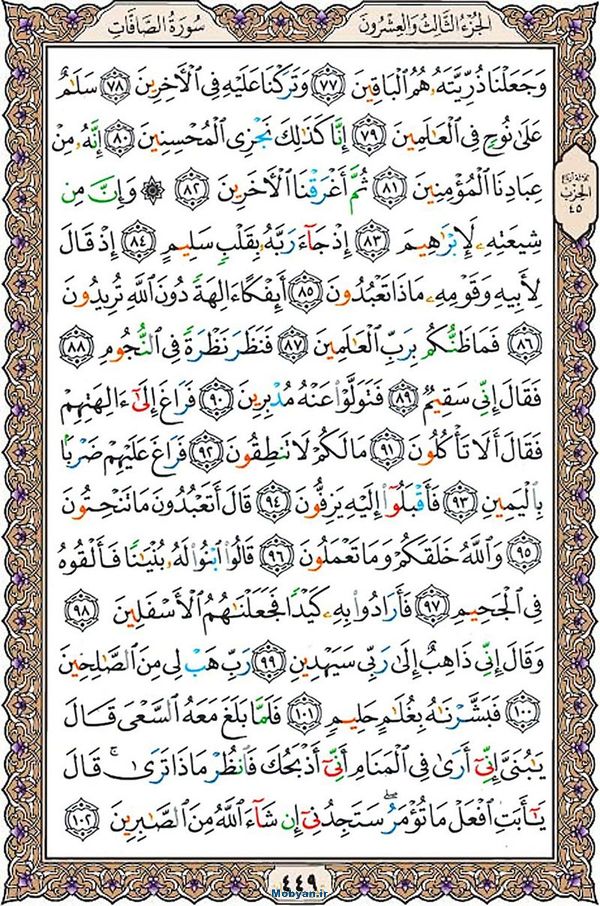 الجُزءُ الثَّالِثُ وَالعِشرُونَ
سُورَةُ الصَّافَّاتِ
وَجَعَلْنَا ذُرِّيَّتَهُۥ هُمُ ٱلْبَاقِينَ ﴿٧٧﴾ وَتَرَكْنَا عَلَيْهِ فِى ٱلْـَٔاخِرِينَ ﴿٧٨﴾ سَلَٰمٌ
عَلَىٰ نُوحٍ فِى ٱلْعَٰلَمِينَ ﴿٧٩﴾ إِنَّا كَذَٰلِكَ نَجْزِى ٱلْمُحْسِنِينَ ﴿٨٠﴾ إِنَّهُۥ مِنْ
عِبَادِنَا ٱلْمُؤْمِنِينَ ﴿٨١﴾ ثُمَّ أَغْرَقْنَا ٱلْـَٔاخَرِينَ ﴿٨٢﴾ ۞ وَإِنَّ مِن
شِيعَتِهِۦ لَإِبْرَٰهِيمَ ﴿٨٣﴾ إِذْ جَآءَ رَبَّهُۥ بِقَلْبٍ سَلِيمٍ ﴿٨٤﴾ إِذْ قَالَ
لِأَبِيهِ وَقَوْمِهِۦ مَاذَا تَعْبُدُونَ ﴿٨٥﴾ أَئِفْكًا ءَالِهَةً دُونَ ٱللَّهِ تُرِيدُونَ
﴿٨٦﴾ فَمَا ظَنُّكُم بِرَبِّ ٱلْعَٰلَمِينَ ﴿٨٧﴾ فَنَظَرَ نَظْرَةً فِى ٱلنُّجُومِ ﴿٨٨﴾
فَقَالَ إِنِّى سَقِيمٌ ﴿٨٩﴾ فَتَوَلَّوْا۟ عَنْهُ مُدْبِرِينَ ﴿٩٠﴾ فَرَاغَ إِلَىٰٓ ءَالِهَتِهِمْ
فَقَالَ أَلَا تَأْكُلُونَ ﴿٩١﴾ مَا لَكُمْ لَا تَنطِقُونَ ﴿٩٢﴾ فَرَاغَ عَلَيْهِمْ ضَرْبًۢا
بِٱلْيَمِينِ ﴿٩٣﴾ فَأَقْبَلُوٓا۟ إِلَيْهِ يَزِفُّونَ ﴿٩٤﴾ قَالَ أَتَعْبُدُونَ مَا تَنْحِتُونَ
﴿٩٥﴾ وَٱللَّهُ خَلَقَكُمْ وَمَا تَعْمَلُونَ ﴿٩٦﴾ قَالُوا۟ ٱبْنُوا۟ لَهُۥ بُنْيَٰنًا فَأَلْقُوهُ
فِى ٱلْجَحِيمِ ﴿٩٧﴾ فَأَرَادُوا۟ بِهِۦ كَيْدًا فَجَعَلْنَٰهُمُ ٱلْأَسْفَلِينَ ﴿٩٨﴾
وَقَالَ إِنِّى ذَاهِبٌ إِلَىٰ رَبِّى سَيَهْدِينِ ﴿٩٩﴾ رَبِّ هَبْ لِى مِنَ ٱلصَّٰلِحِينَ
﴿١٠٠﴾ فَبَشَّرْنَٰهُ بِغُلَٰمٍ حَلِيمٍ ﴿١٠١﴾ فَلَمَّا بَلَغَ مَعَهُ ٱلسَّعْىَ قَالَ
يَٰبُنَىَّ إِنِّىٓ أَرَىٰ فِى ٱلْمَنَامِ أَنِّىٓ أَذْبَحُكَ فَٱنظُرْ مَاذَا تَرَىٰ ۚ قَالَ
يَٰٓأَبَتِ ٱفْعَلْ مَا تُؤْمَرُ ۖ سَتَجِدُنِىٓ إِن شَآءَ ٱللَّهُ مِنَ ٱلصَّٰبِرِينَ ﴿١٠٢﴾
الحِزب
٤٥
٤٤٩
Mobyan.ir